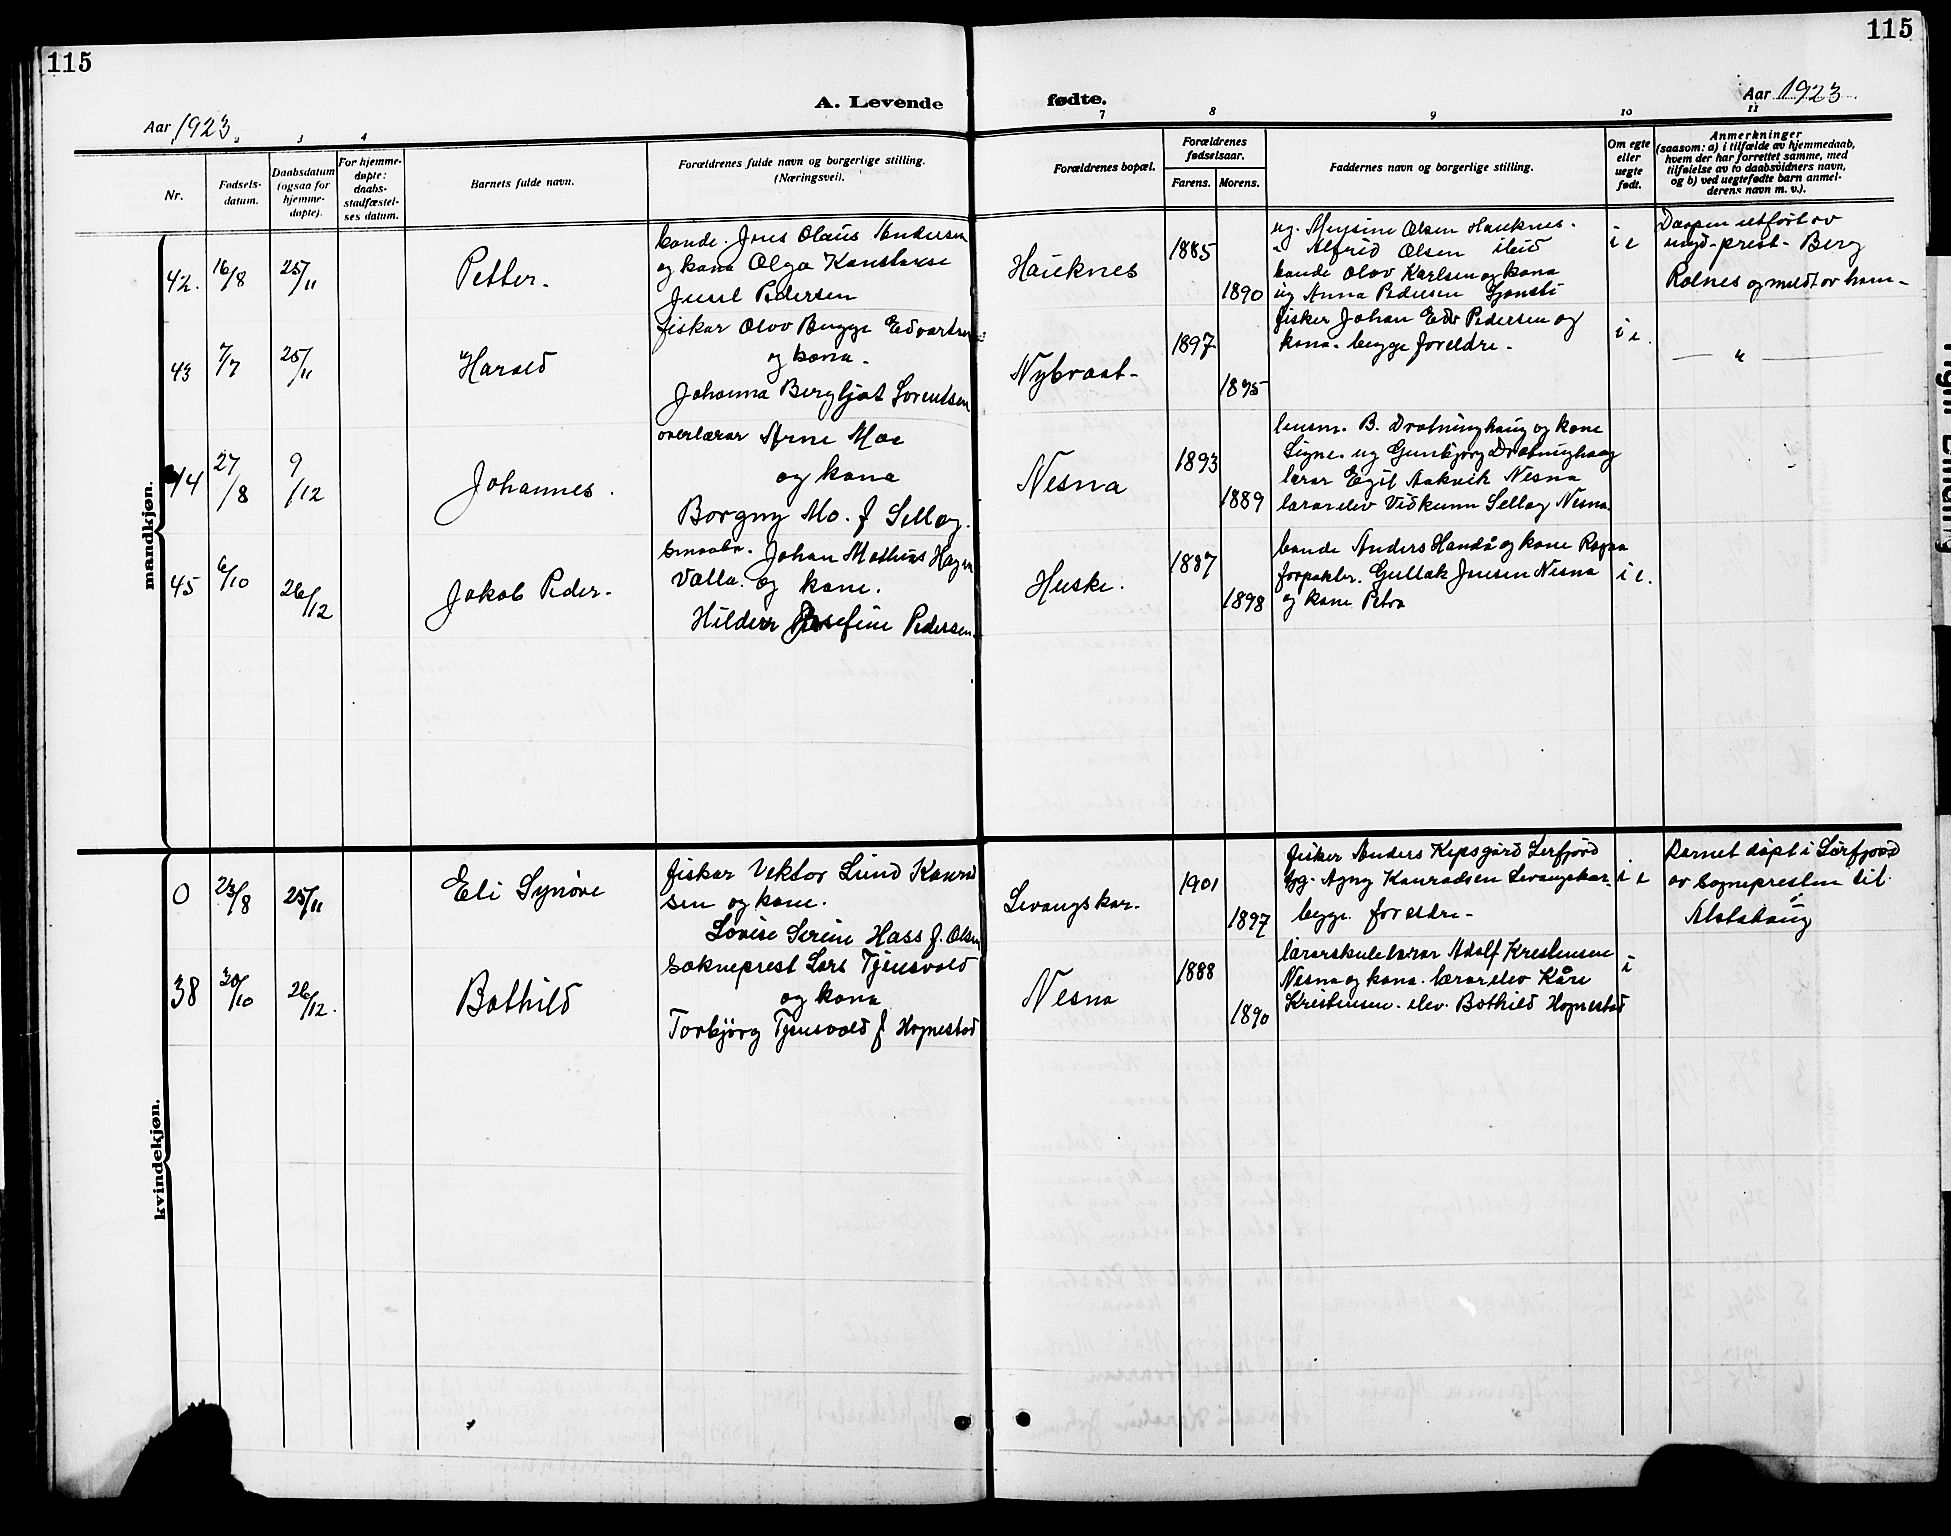 115
115
A. Levende fødte.
Aar 1923.
Aar 1923.
2 3 4 7 8 9 10 11
Nr.
Fødsels-
datum.
Daabsdatum
(ogsaa for
hjemme-
døpte).
For hjemme-
døpte:
daabs-
stadfæstel-
ses datum.
Barnets fulde navn.
Forældrenes fulde navn og borgerlige stilling.
(Næringsvei).
Forældrenes bopæl.
Forældrenes
fødselsaar.
Farens. Morens.
Faddernes navn og borgerlige stilling.
Om egte
eller
uegte
født.
Anmerkninger
(saasom: a) i tilfælde av hjemmedaab,
hvem der har forrettet samme, med
tilføielse av to daabsvidners navn,
og b) ved uegtefødte barn anmel-
derens navn m. v.).
mandkjøn.
42. 16/8 25/11
Petter.
bonde. Jens Olaus Andersen
og kona Olga Konstanse
Juul Pedersen
Hauknes
1885
1890
ug. Mysine Olsen Hauknes.
" Alfrid Olsen ibid
bonde Olov Karlsen og kona
ug Anna Pedersen
i e
Daapen utført av
ungd-prest- Berg
Rølnes og meldt av ham-
43 7/7 25/11
Harald
fiskar Olov Bugge Edvartsen
og kona-
Johanna Bergljot Sorentsen
Nybraat-
1897
1895
fisker Johan Edv Pedersen og
kona. begge foreldre-
i e.
— " —
44 27/8 9/12
Johannes.
overlærar Arne Moe
og kona
Borgny Mo. f Selløg.
Nesna
1893
1889
lensm. B. Drotninghaug og kone
Signe. ug Gunbjørg Drotninghaug
lærar Egil Aakvik Nesna
lærarelev Vidkunn Selløg Nesna.
45 6/10 26/12
Jakob Peder-
Smaabr. Johan Mathias Hagen
Valla. og kone.
Hilder Josefine Pedersen.
Huske.
1887
1898
bonde Anders Handå og kone Ragna
forpakter. Gullak Jensen Nesna
og kone Petra
i e.
kvindekjøn.
0 23/8 25/11
Eli Synøve
fiskar Vektor Lund Konrad
sen og kone.
Lovise Serine Hass f. Olsen
Levangskar-
1901
1897
fisker Anders Kipsgård Lerfjord
Gg. Agny Konradsen Levangskar-
begge foreldre-
i e
Barnet døpt i Leirfjord
av sognepresten til
Alstahaug
38 30/10 26/12.
Bothild
Sokneprest Lars Tjensvold
og kona
Torbjörg Tjensvold f Hognestad
Nesna
1888
1890
lærarskulelærar Adolf Kristensen
Nesna og kona. lærarelev Kåre
Kristensen. elev. Bothild Hognestad
i